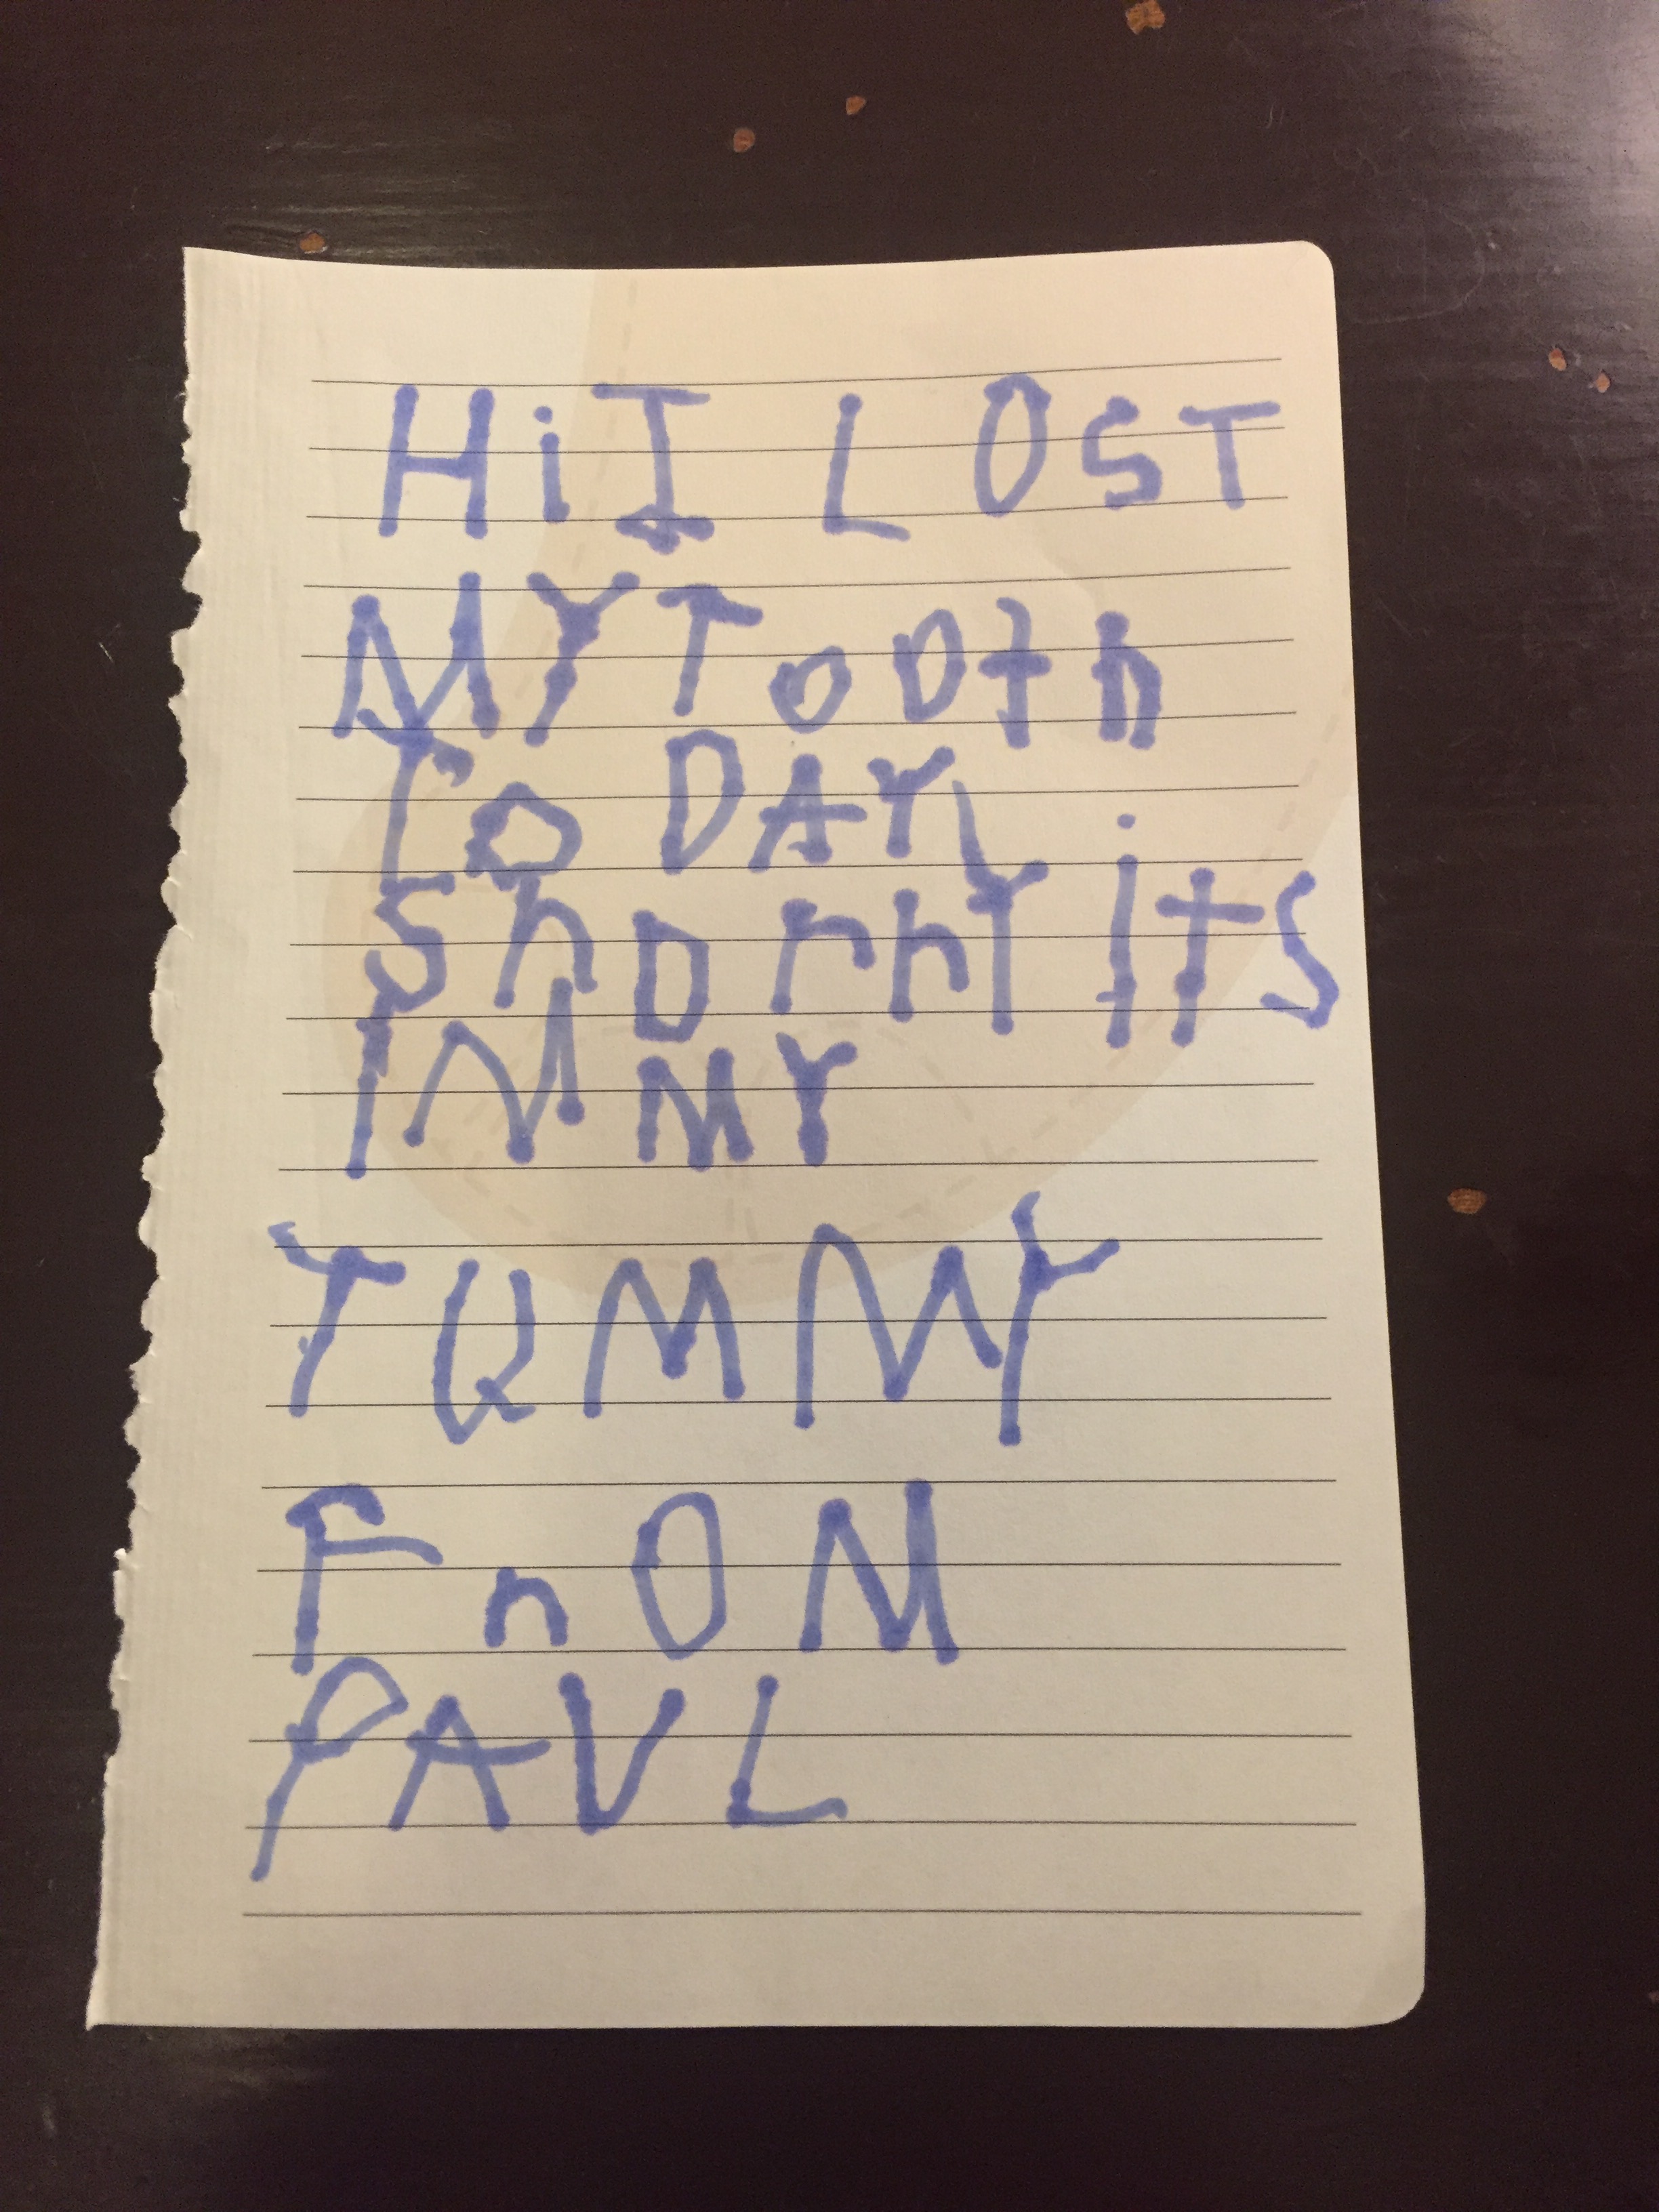 Hi I LOST
MY Tooth
To DAY
ShorrY iTS
IN MY
TUMMY
FrOM
PAUL